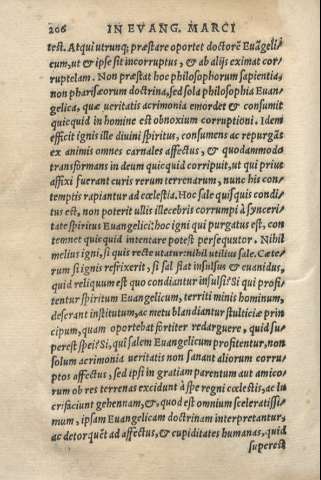 206 IN EVANG. MARCI
test. Atqui utrunq; præstare oportet doctorẽ Euãgeli/
cum, ut & ipse sit incorruptus, & ab alijs eximat cor/
ruptelam. Non præstat hoc philosophorum sapientia,
non pharisæorum doctrina, sed sola philosophia Euan/
gelica, quæ ueritatis acrimonia emordet & consumit
quicquid in homine est obnoxium corruptioni. Idem
efficit ignis ille diuini spiritus, consumens ac repurgãs
ex animis omnes carnales affectus, & quodammodo
transformans in deum quicquid corripuit, ut qui prius
affixi fuerant curis rerum terrenarum, nunc his con/
temptis rapiantur ad cœlestia. Hoc sale quisquis condi/
tus est, non poterit ullis illecebris corrumpi à synceri/
tate spiritus Euangelici: hoc igni qui purgatus est, con
temnet quicquid intentare potest persequutor. Nihil
melius igni, si quis recte utatur: nihil utilius sale. Cæte/
rum si ignis refrixerit, si sal fiat insulsus & euanidus,
quid reliquum est quo condiantur insulsi? Si qui profi/
tentur spiritum Euangelicum, territi minis hominum,
deserant institutum, ac metu blandiantur stulticiæ prin
cipum, quam oportebat fortiter redarguere, quid su/
perest spei? Si, qui salem Euangelicum profitentur, non
solum acrimonia ueritatis non sanant aliorum corru/
ptos affectus, sed ipsi in gratiam parentum aut amico/
rum ob res terrenas excidunt à spe regni cœlestis, ac lu
crifaciunt gehennam, & quod est omnium sceleratissi/
mum, ipsam Euangelicam doctrinam interpretantur,
ac detorquẽt ad affectus, & cupiditates humanas, quid
superest